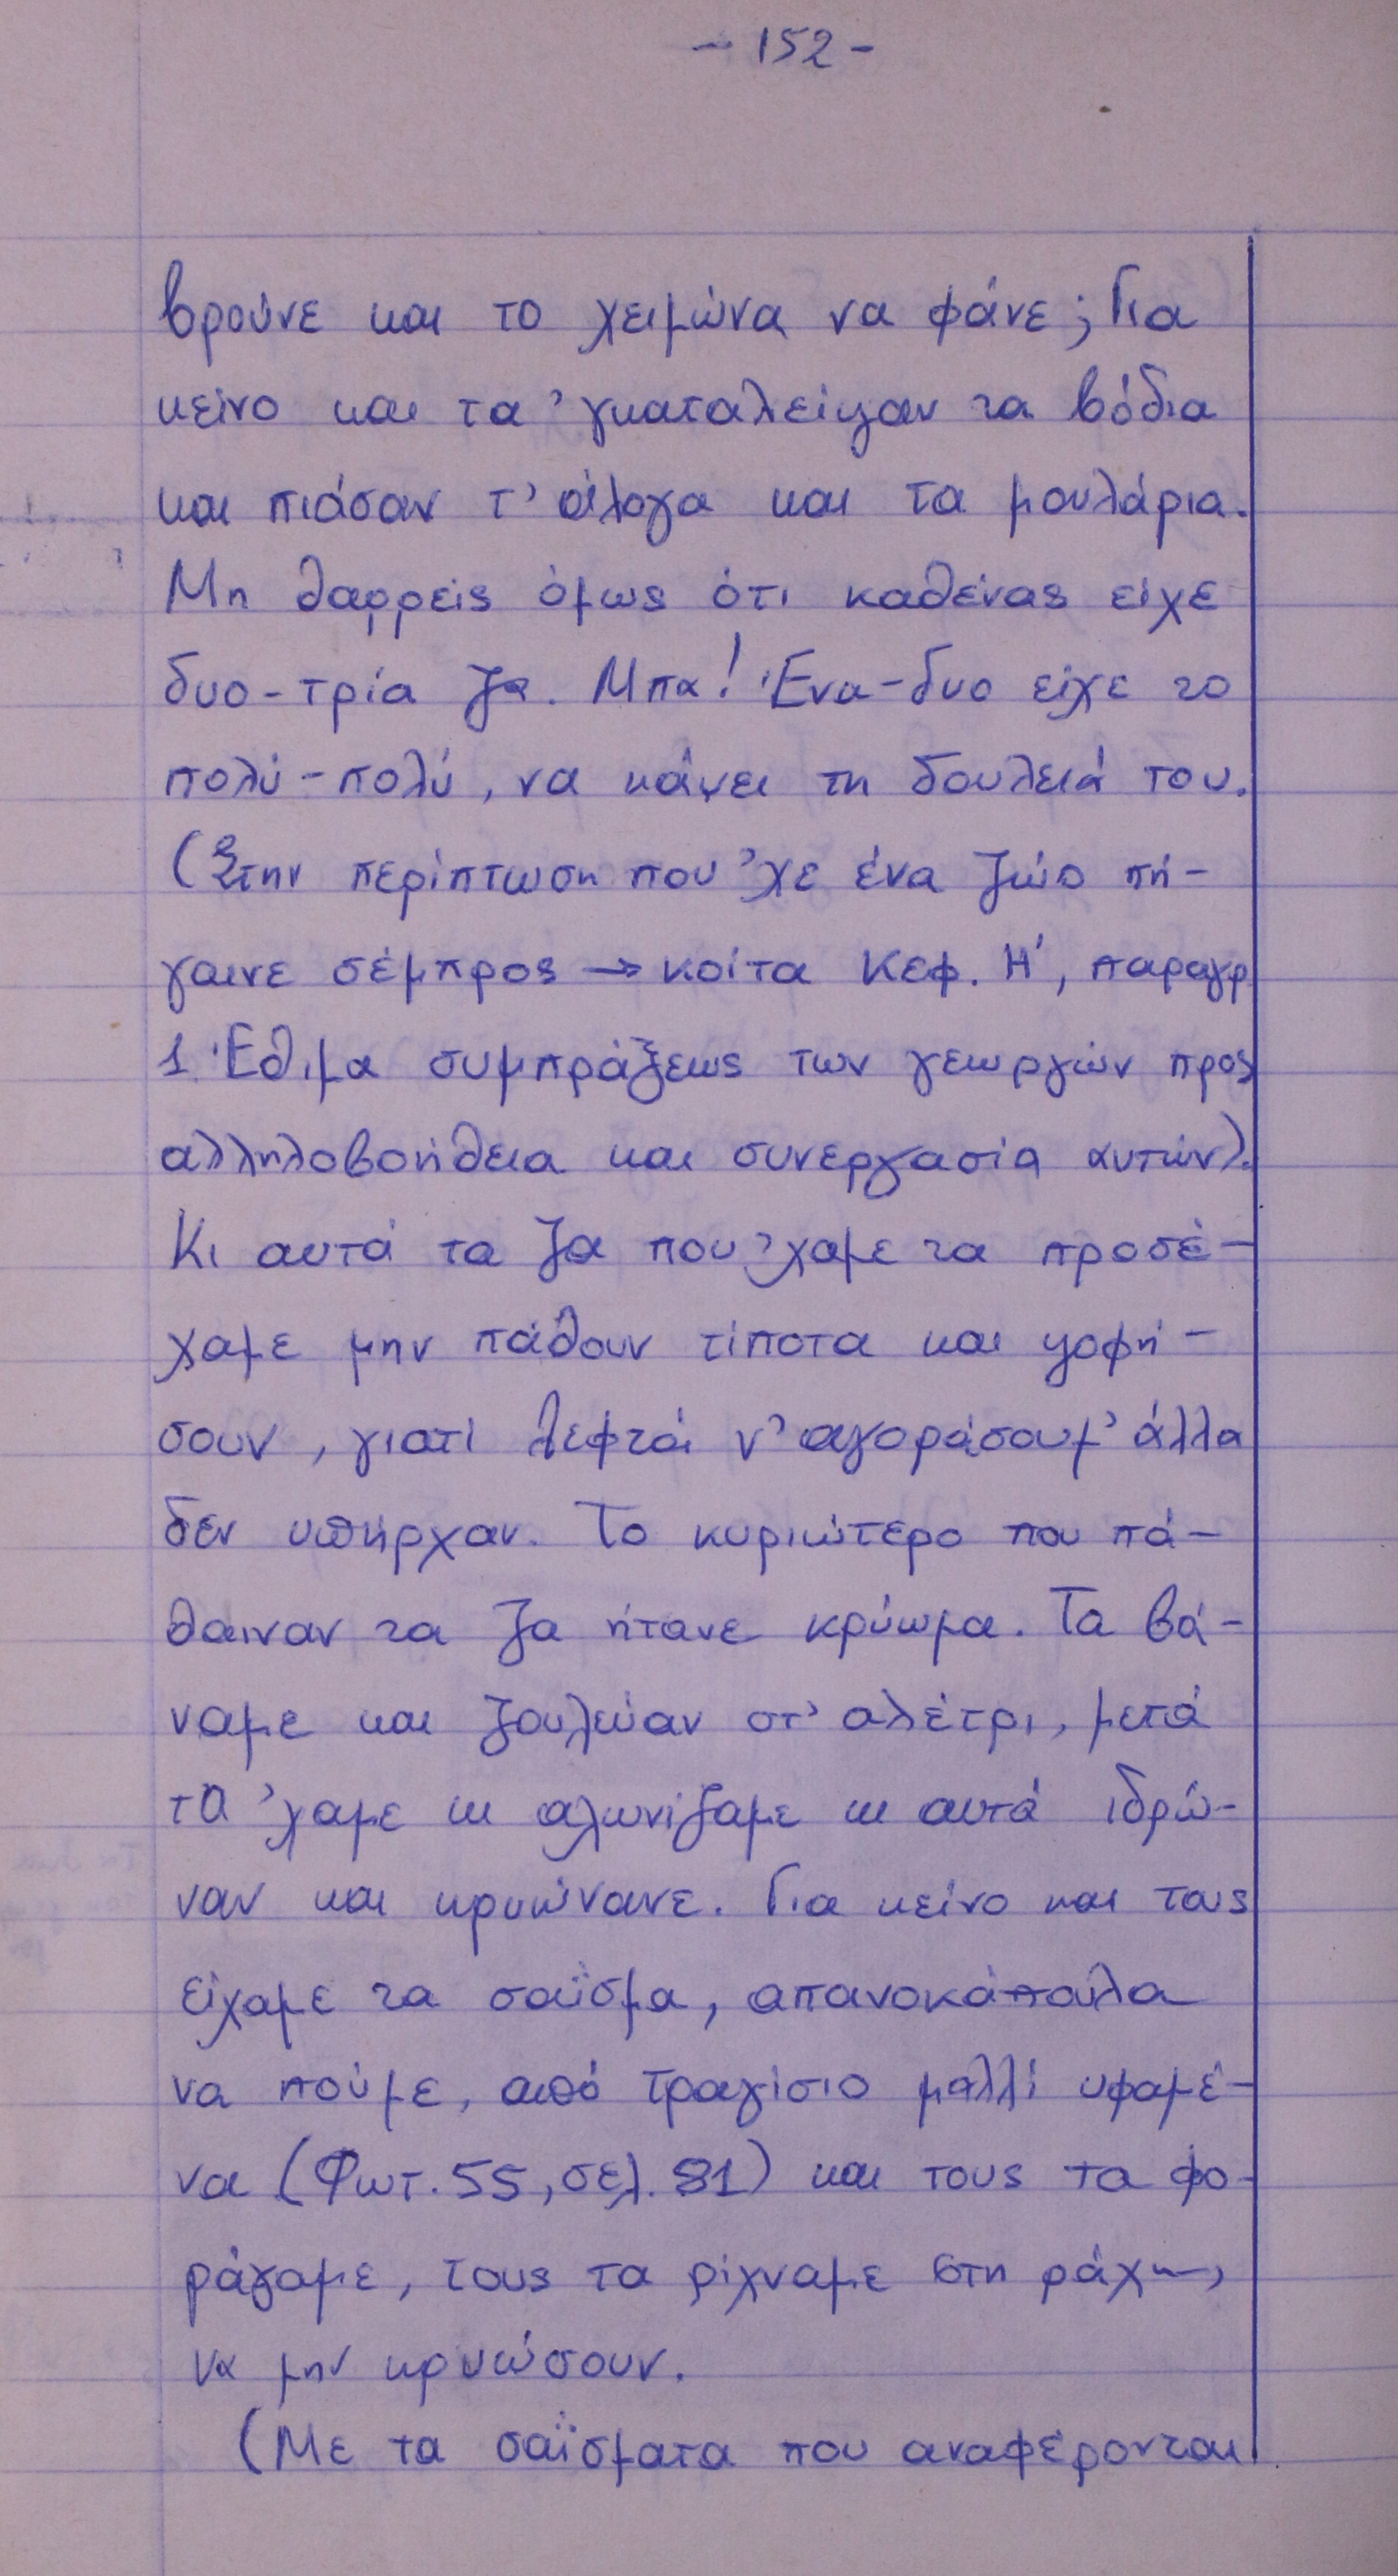 - 152 -
βρούνε και το χειμώνα να φάνε; Για
κείνο και τα 'γκαταλείψαν τα βόδια
και πιάσαν τ' άλογα και τα μουλάρια.
Μη θαρρείς όμως ότι καθένας είχε
δυο-τρία ζα. Μπα! Ένα-δυο είχε το
πολύ-πολύ, να κάψει τη δουλειά του.
(Στην περίπτωση που 'χε ένα ζώο πή-
γαινε σέμπρος → κοίτα Κεφ. Η', παραγρ
1. Έθιμα συμπράξεως των γεωργών προς
αλληλοβοήθεια και συνεργασία αυτών).
Κι αυτά τα ζα που 'χαμε τα προσέ-
χαμε μην πάθουν τίποτα και ψοφή-
σουν, γιατί λεφτά ν' αγοράσουμ' άλλα
δεν υπήρχαν. Το κυριώτερο που πά-
θαιναν τα ζα ήτανε κρύωμα. Τα βά-
ναμε και ζουλεύαν στ' αλέτρι, μετά
τα 'χαμε κι αλωνίζαμε κι αυτά ιδρώ-
ναν και κρυώνανε. Για κείνο και τους
είχαμε τα σαΐσμα, απανοκάπουλα
να πούμε, από τραγίσιο μαλλί υφαμέ-
να (Φωτ. 55, σελ. 81) και τους τα φο-
ράγαμε, τους τα ρίχναμε στη ράχη,
να μην κρυώσουν.
(Με τα σαΐσματα που αναφέρονται